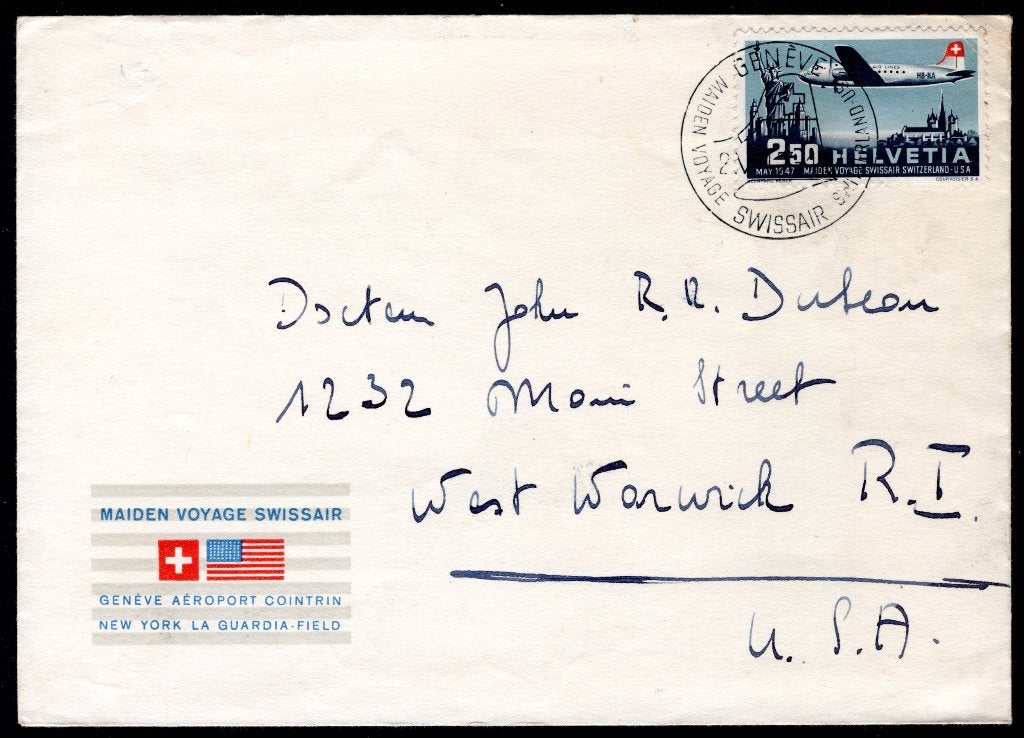 GENÈVE
MAIDEN VOYAGE SWISSAIR SWITZERLAND-USA
AIR LINES
HB-ILA
2.50 HELVETIA
MAY 1947 MAIDEN VOYAGE SWISSAIR SWITZERLAND-USA
COURVOISIER S.A.
Docteur John R. R. Dubeau
1232 Main Street
West Warwick R.I.
U.S.A.
MAIDEN VOYAGE SWISSAIR
GENÈVE AÉROPORT COINTRIN
NEW YORK LA GUARDIA-FIELD